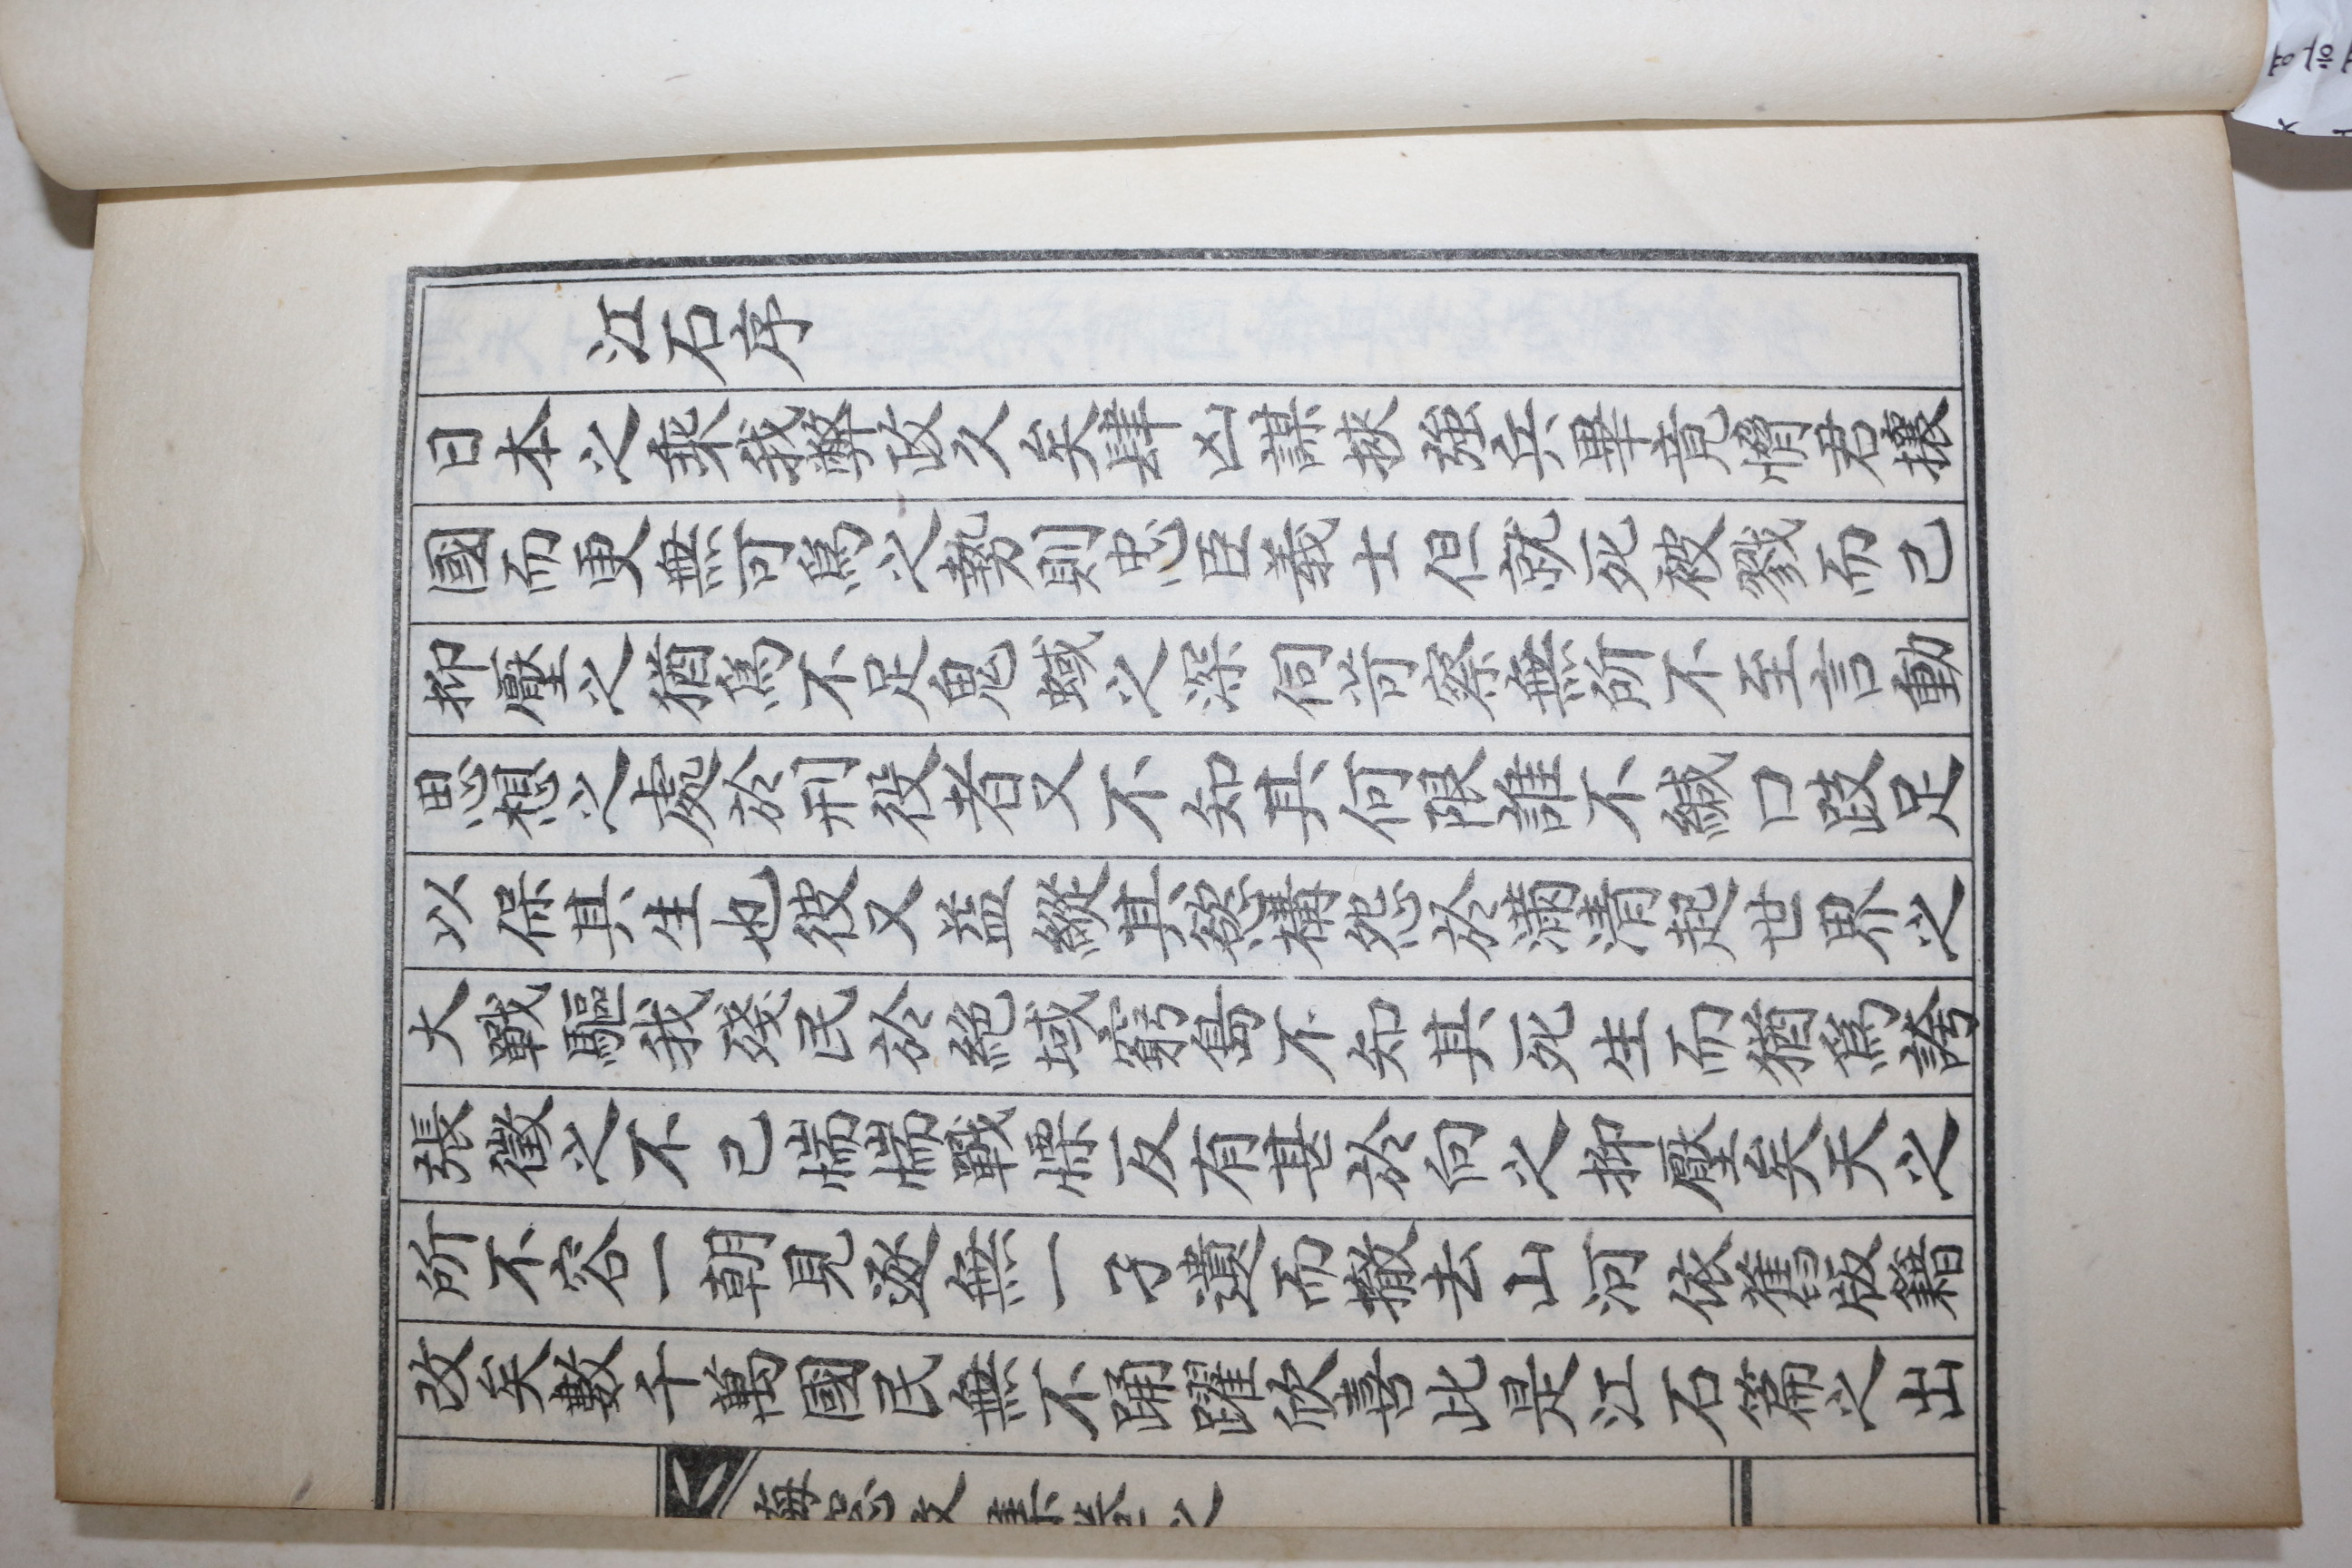 江石序
日本之乘我弊政久矣肆凶謀挾強兵畢竟脅君攘
國而更無可爲之勢則忠臣義士但就死被戮而已
抑壓之猶爲不足鬼蜮之深伺苛察無所不至言動
思想之處於刑役者又不知其何限誰不緘口跂足
以保其生也彼又益縱其慾構怨於滿清起世界之
大戰驅我殘民於絶域窮島不知其死生而猶爲誇
張徵之不已惴惴戰慄反有甚於向之抑壓矣天之
所不容一朝見逐無一孑遺而撤去山河依舊版籍
改矣數千萬國民無不踊躍欣喜此是江石篇之出
文集卷之